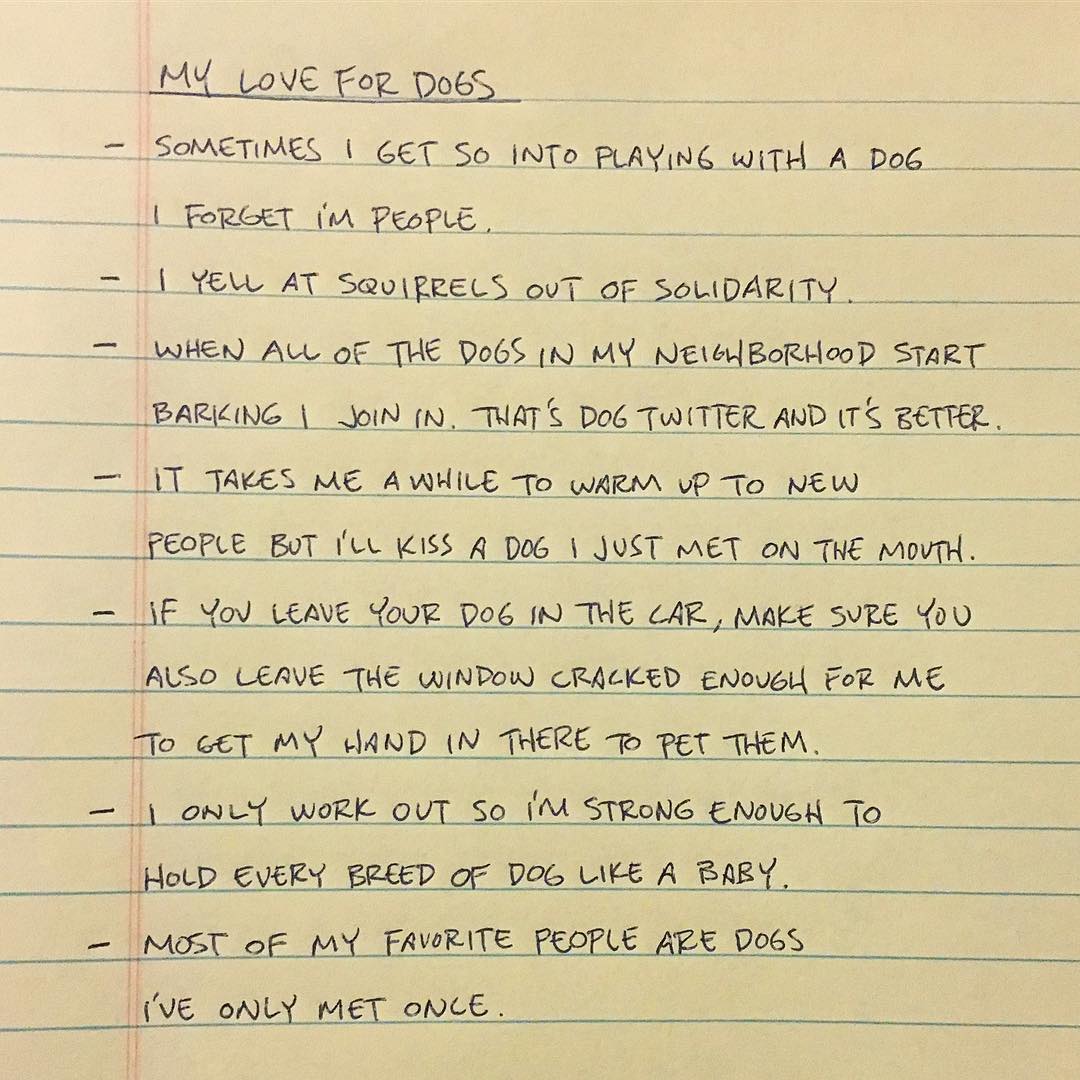 MY LOVE FOR DOGS
- SOMETIMES I GET SO INTO PLAYING WITH A DOG
I FORGET I'M PEOPLE.
- I YELL AT SQUIRRELS OUT OF SOLIDARITY.
- WHEN ALL OF THE DOGS IN MY NEIGHBORHOOD START
BARKING I JOIN IN. THAT'S DOG TWITTER AND IT'S BETTER.
- IT TAKES ME A WHILE TO WARM UP TO NEW
PEOPLE BUT I'LL KISS A DOG I JUST MET ON THE MOUTH.
- IF YOU LEAVE YOUR DOG IN THE CAR, MAKE SURE YOU
ALSO LEAVE THE WINDOW CRACKED ENOUGH FOR ME
TO GET MY HAND IN THERE TO PET THEM.
- I ONLY WORK OUT SO I'M STRONG ENOUGH TO
HOLD EVERY BREED OF DOG LIKE A BABY.
- MOST OF MY FAVORITE PEOPLE ARE DOGS
I'VE ONLY MET ONCE.